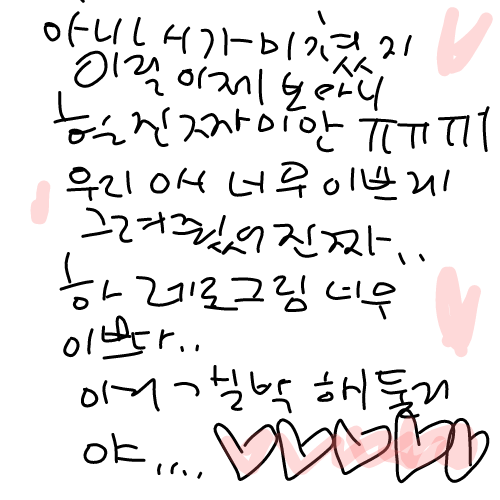 아니 미쳤지
이걸 이제 보다니
진짜 미안 ㅠㅠㅠ
우리 애 너무 이쁘게
그려줬어 진짜..
하 레로그림 너무
이쁘다..
이거 해둘게
야....